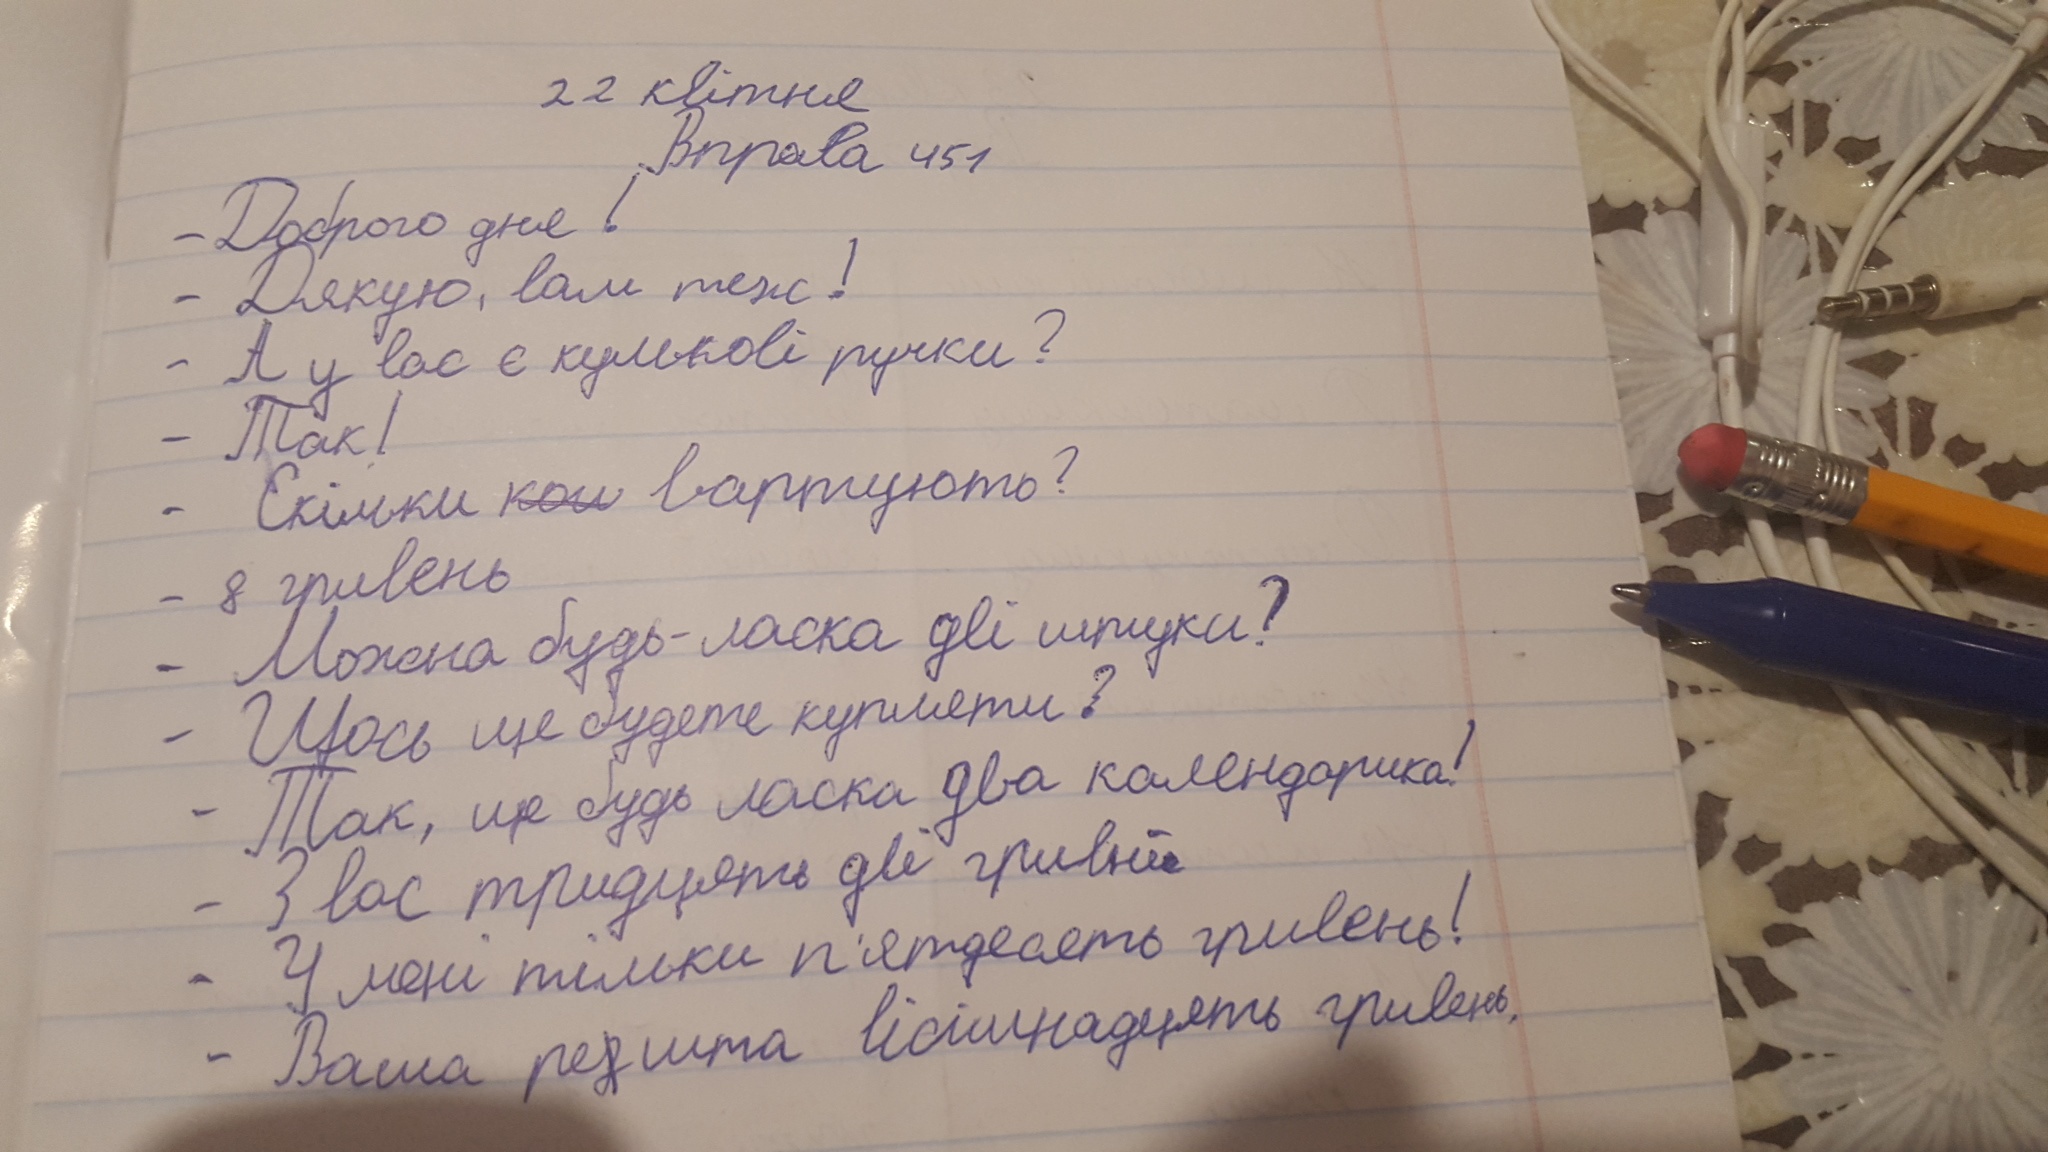 22 квітня
Вправа 451
- Доброго дня!
- Дякую, вам теж!
- А у вас є кулькові ручки?
- Так!
- Скільки вартують?
- 8 гривень
- Можна будь-ласка дві штуки?
- Щось ще будете купляти?
- Так, ще будь ласка два календарика!
- З вас тридцять дві гривні
- У мені тільки п'ятдесять гривень!
- Ваша решта вісімнадцять гривень.